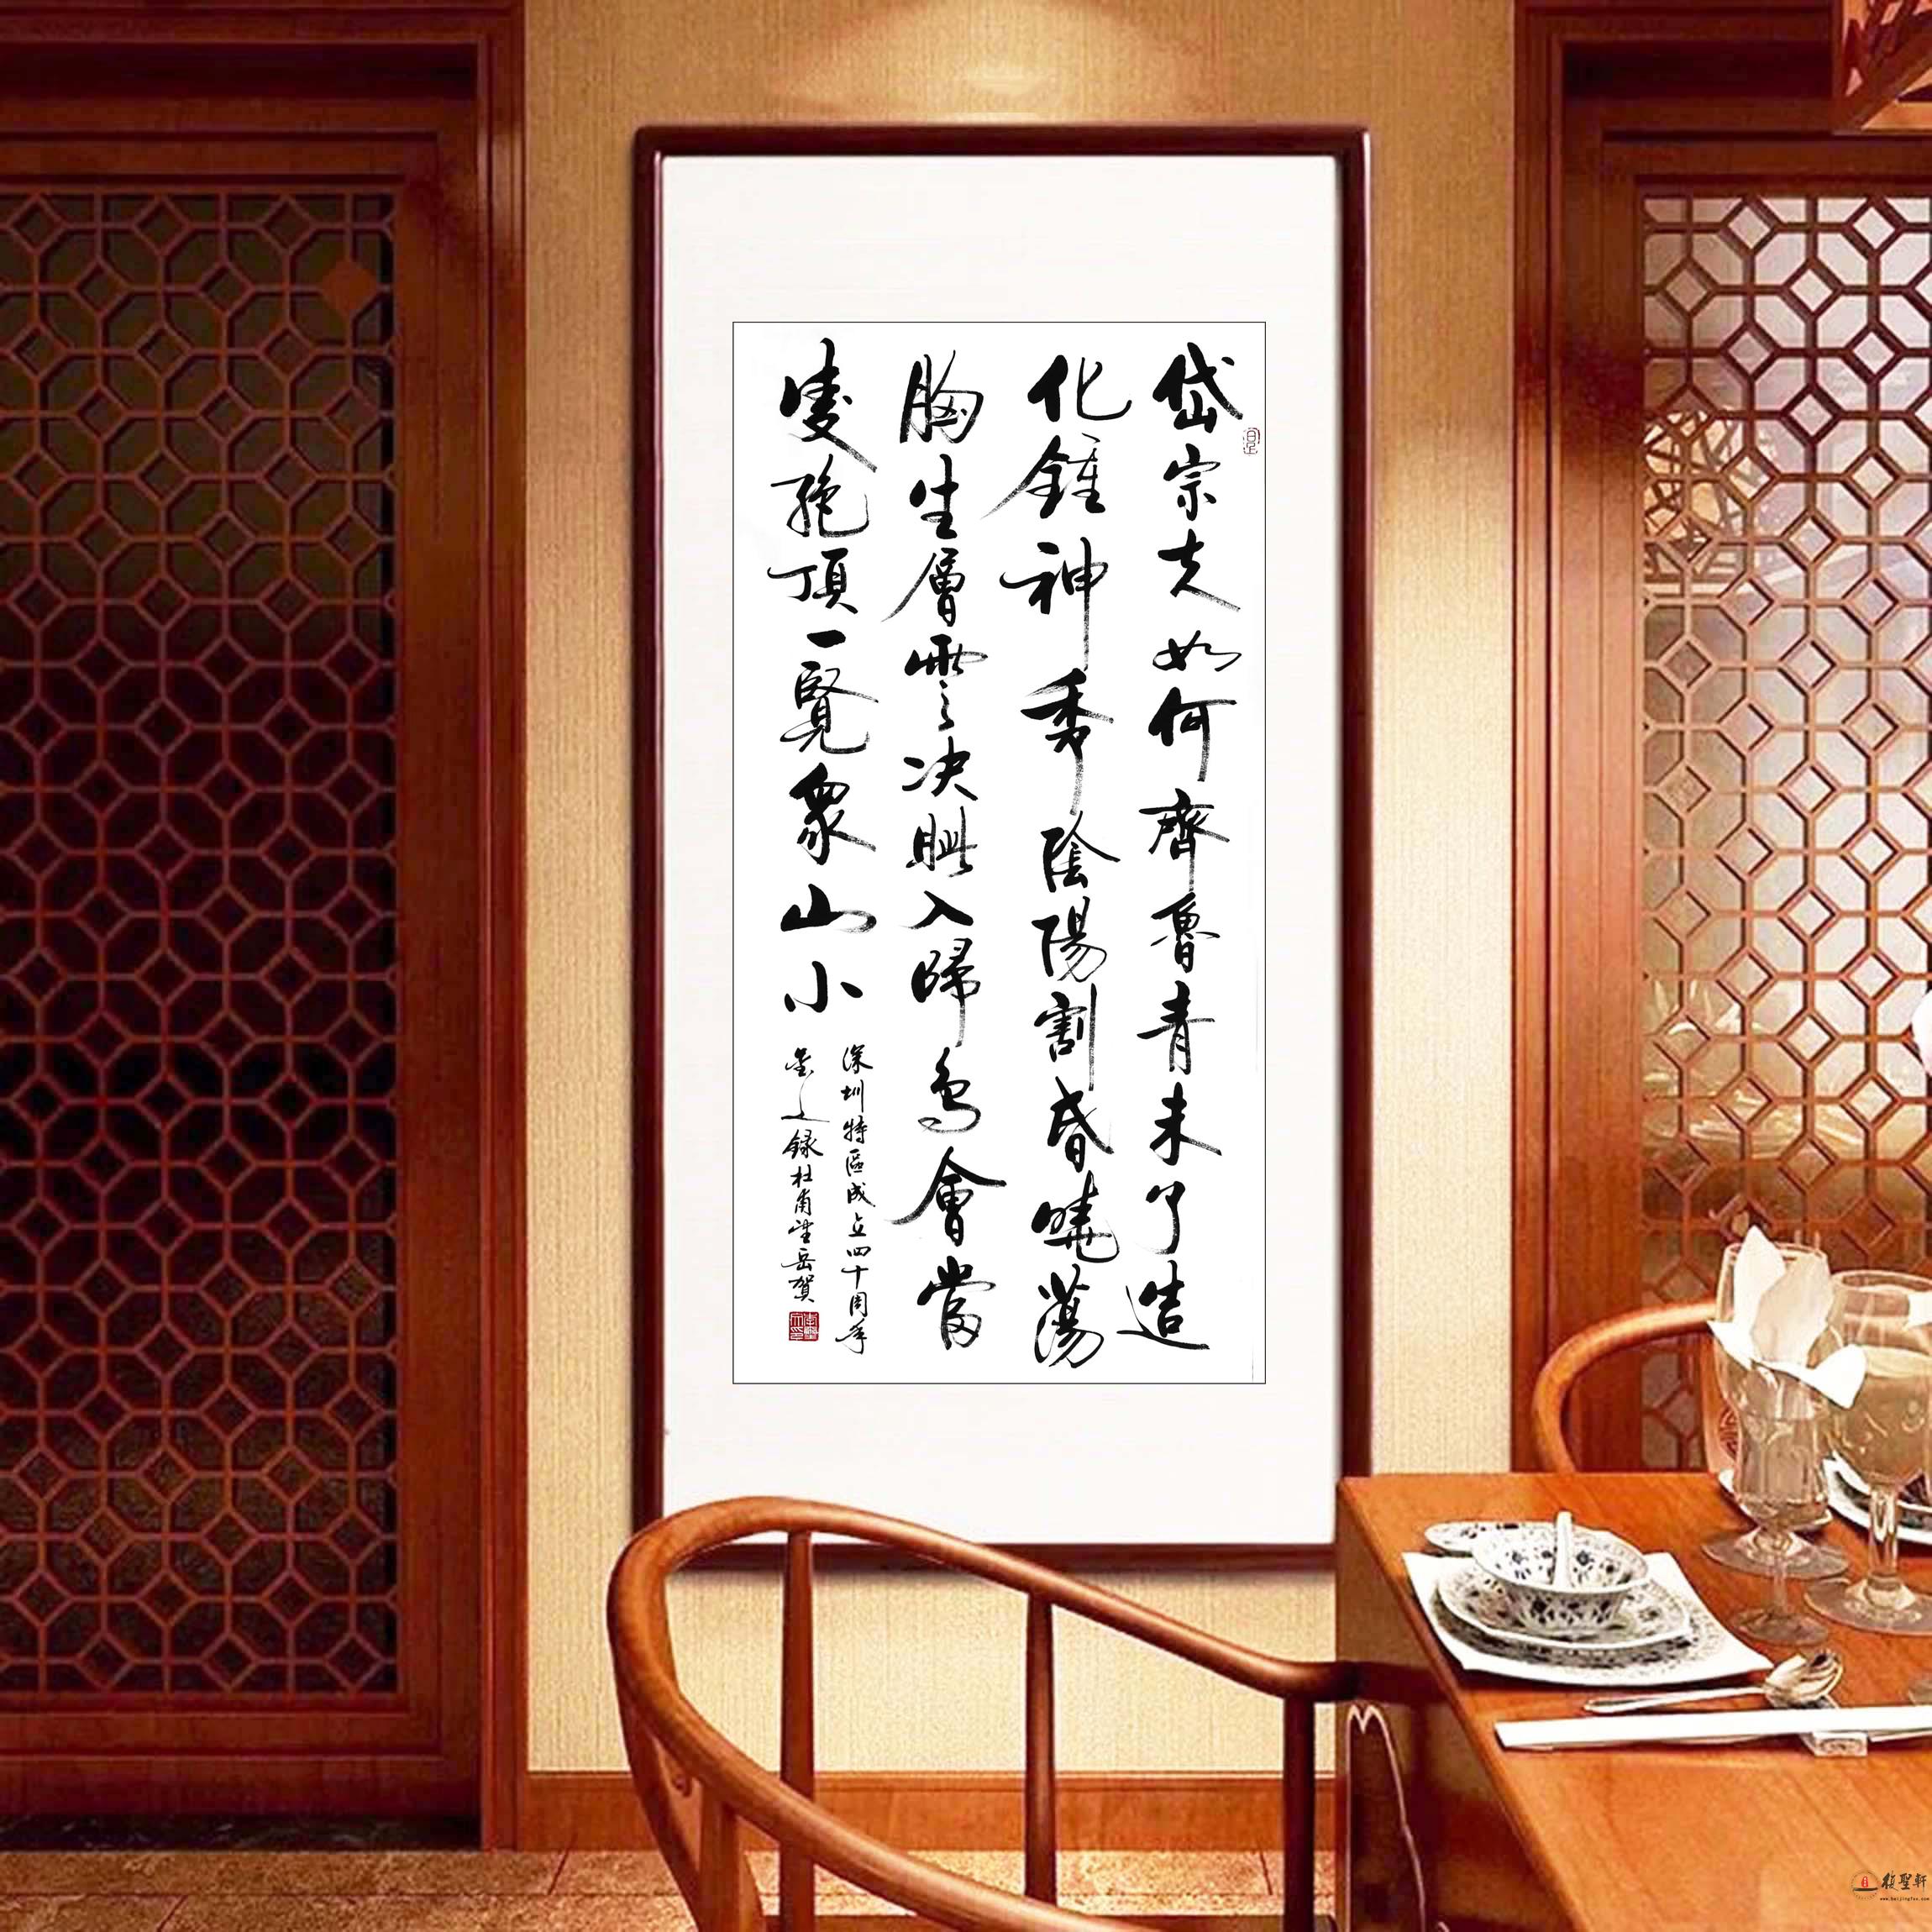 岱宗夫如何齊魯青未了造
化鍾神秀陰陽割昏曉蕩
胸生層雲决眥入歸鳥會當
凌絶頂一覽衆山小
深圳特區成立四十周年
錄杜甫望岳賀